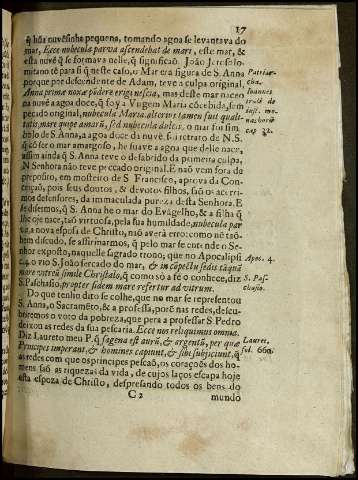 17
q̃ hũa nuvẽsinha pequena, tomando agoa se levantava do
mar, Ecce nubecula parva ascendebat de mari, este mar, &
esta nuvẽ q̃ se formava nelle, q̃ significaõ. Joaõ Jeroso-
mitano tẽ para si q̃ neste caso, o Mar era figura de S. Anna
porque por descendente de Adam, teve a culpa original,
Anna primæ noxæ pondere erigi nescia, mas deste mar naceo
na nuvẽ a agoa doce, q̃ foy a Virgem Maria cõcebida, sem
peccado original, nubecula Maria. alterutri
mare quipe amarũ, sed nubecula dulcis, o mar foi sim-
bolo de S. Anna, a agoa doce da nuvẽ foi retrato de N.S.
q̃ cõ ser o mar amargoso, he suave a agoa que delle nace,
assim ainda q̃ S. Anna teve o desabrido da primeira culpa,
N Senhora não teve peccado original. E não vem fora de
proposito, em mosteiro de S. Francisco, aprova da Con-
ceiçaõ, pois seus doutos, & devotos filhos, saõ os acerri-
mos defensores, da immaculada pureza desta Senhora. E
se dissermos, q̃ S. Anna he o mar do Evãgelho, & a filha q̃
lhe oje nace, taõ virtuosa, pela sua humildade, nubecula par-
va, a nova esposa de Christo, não averá erro: como nẽ taõ-
bem discudo, se affirmarmos, q̃ pelo mar se entende o Se-
nhor exposto, naquelle sagrado trono, que no Apocalipsi
c.4. o vio S. Joaõ sercado do mar, & in cõspectu sedis tãquã
mare vitreũ simile Christalo, q̃ como só a fé o conhece, diz
S. Paschasio, propter fidem mare refertur ad vitrum.
Do que tenho dito se colhe, que no mar se representou
S. Anna, o Sacramẽto, & a professa, porẽ nas redes, descu-
briremos o voto da pobreza, que pera a professar S. Pedro
deixou as redes da sua pescaria. Ecce nos reliquimus omnia.
Diz Laureto meu P. q̃ sagena est aurũ, & argentũ, per quæ
Principes imperant, & homines capiunt, & sibi subjiciunt, q̃
as redes com que os principes pescaõ, os coraçoẽs dos ho-
mens saõ as riquezas da vida, de cujos laços escapa hoje
esta esposa de Christo, despresando todos os bens do
C 2 mundo
Patriar-
cha.
Joannes
tract. de
inst. mo-
nachorũ
cap 32.
Apoc. 4.
S. Pas-
chasio.
Lauret.
fol. 660.